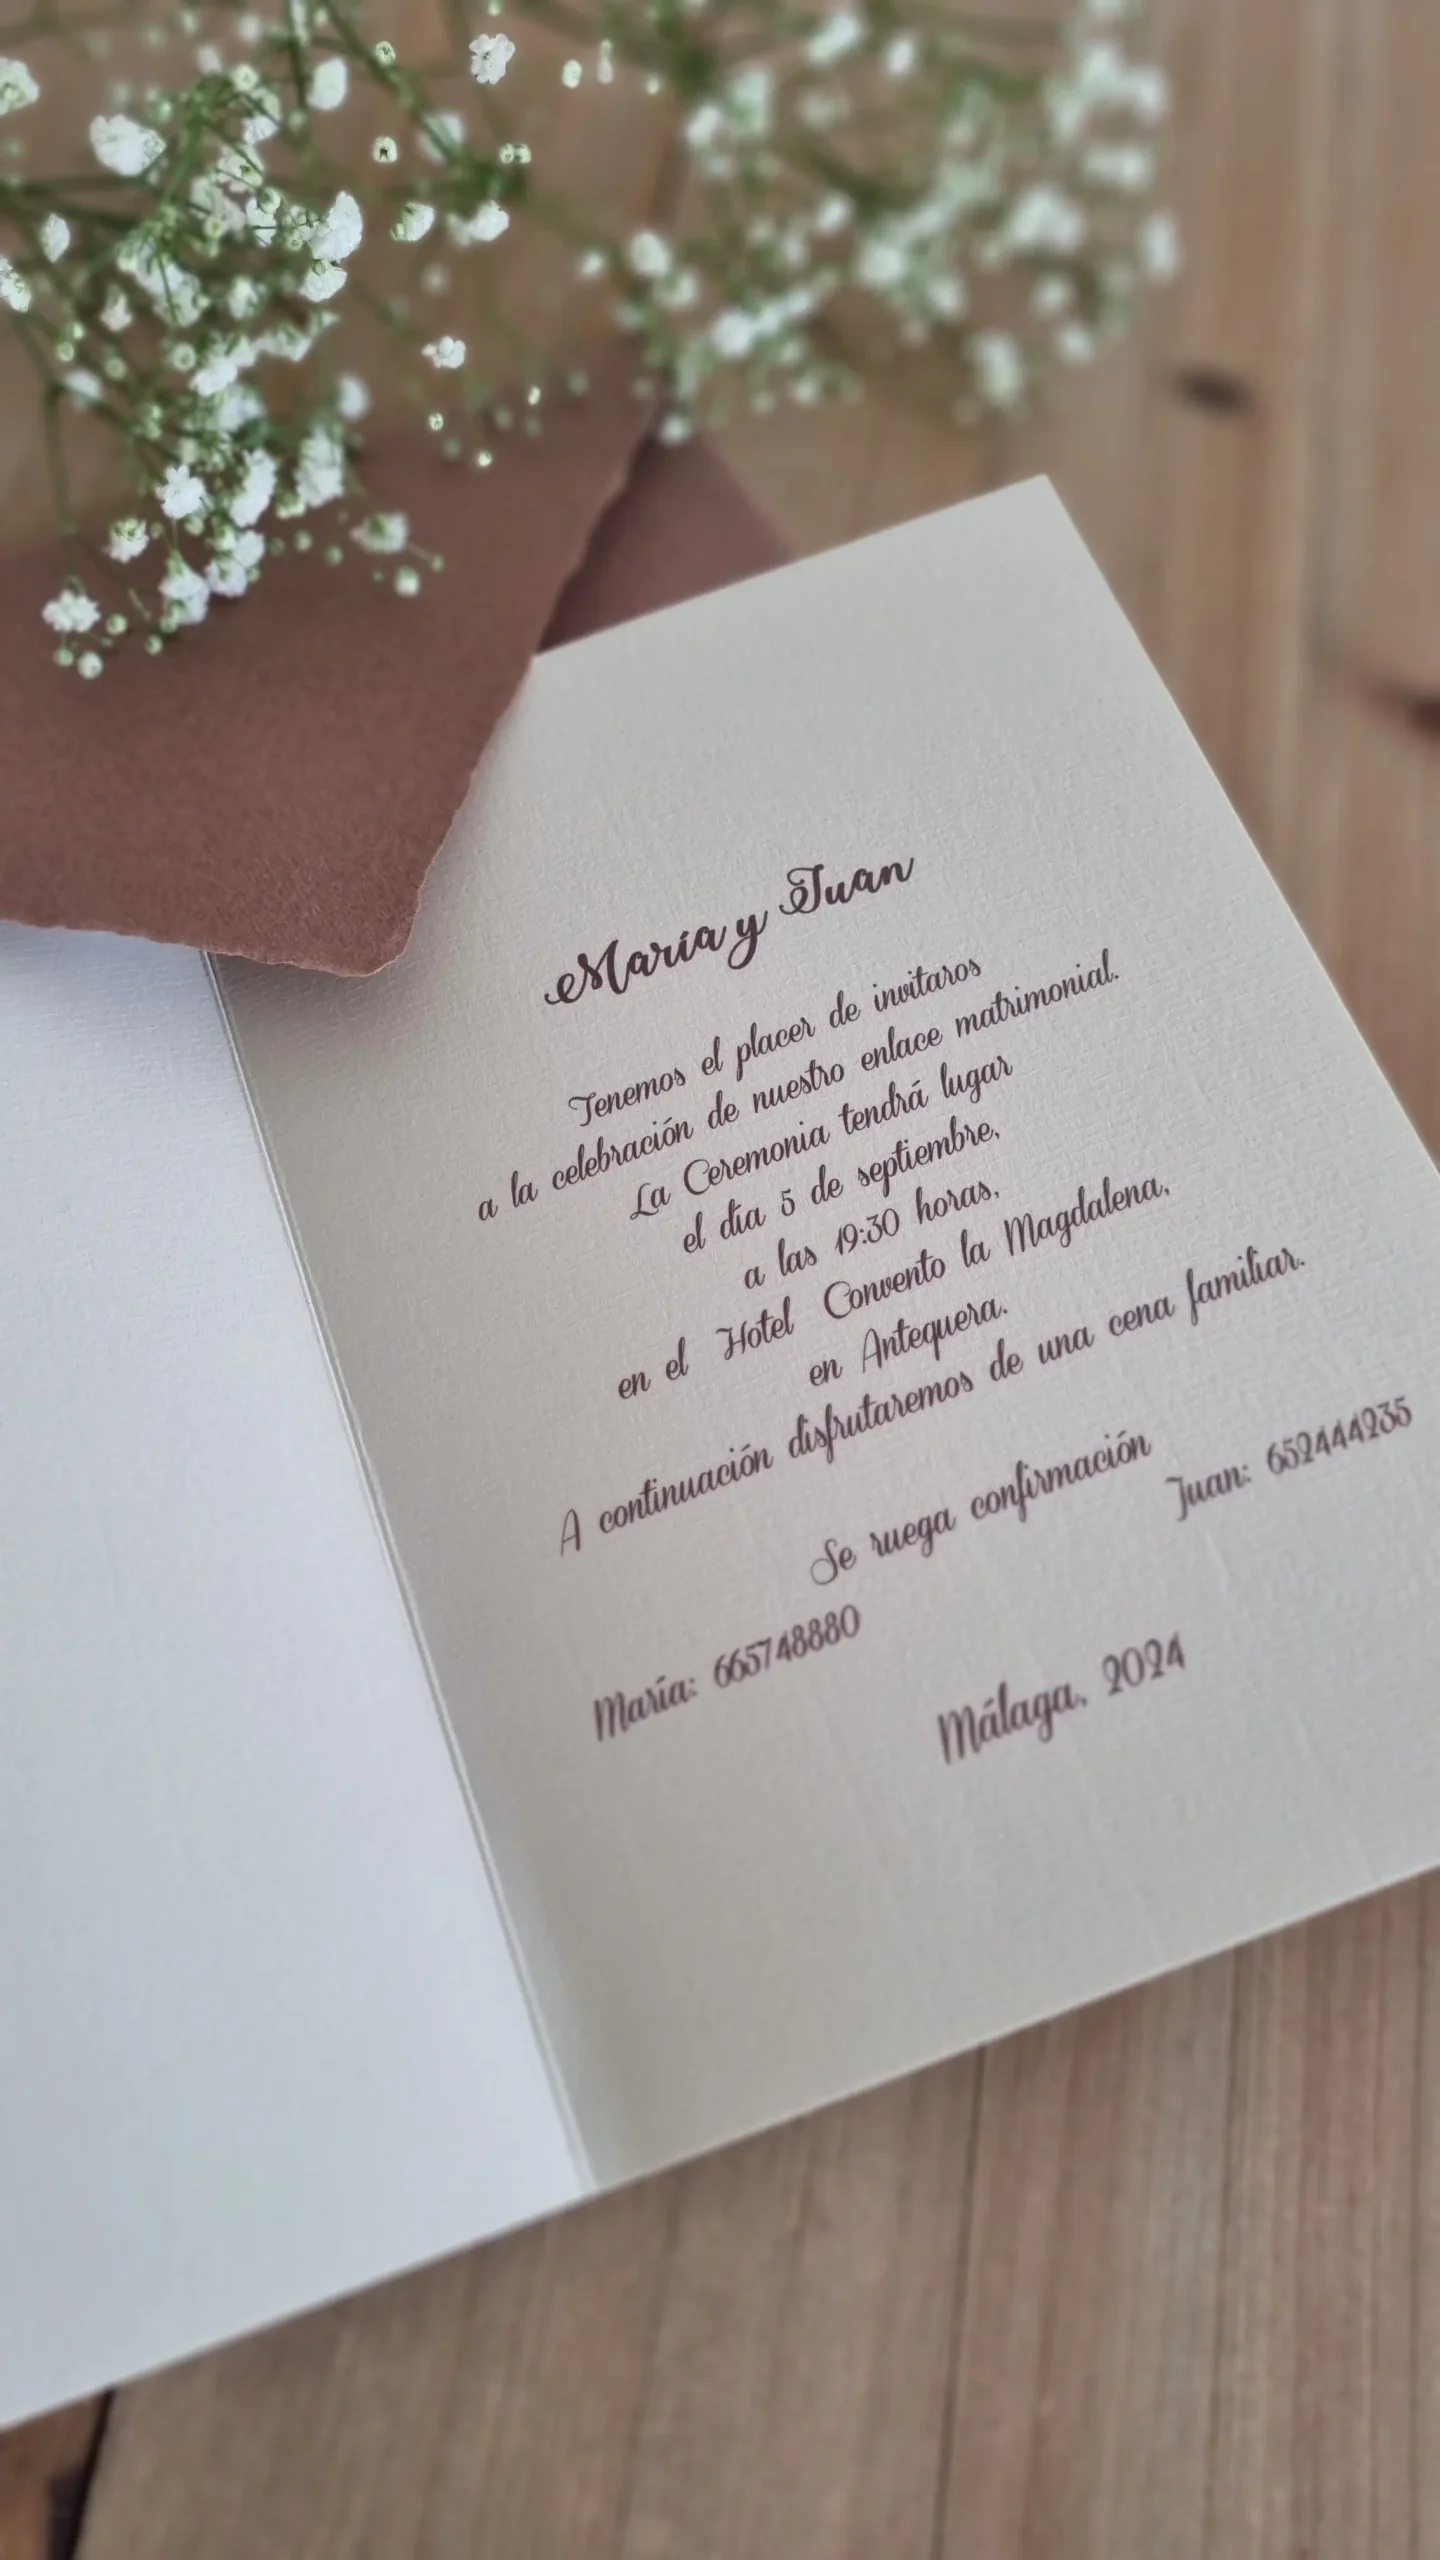 María y Juan
Tenemos el placer de invitaros
a la celebración de nuestro enlace matrimonial.
La Ceremonia tendrá lugar
el día 5 de septiembre,
a las 19:30 horas,
en el Hotel Convento la Magdalena,
en Antequera.
A continuación disfrutaremos de una cena familiar.
Se ruega confirmación
María: 665748880 Juan: 652444235
Málaga, 2024